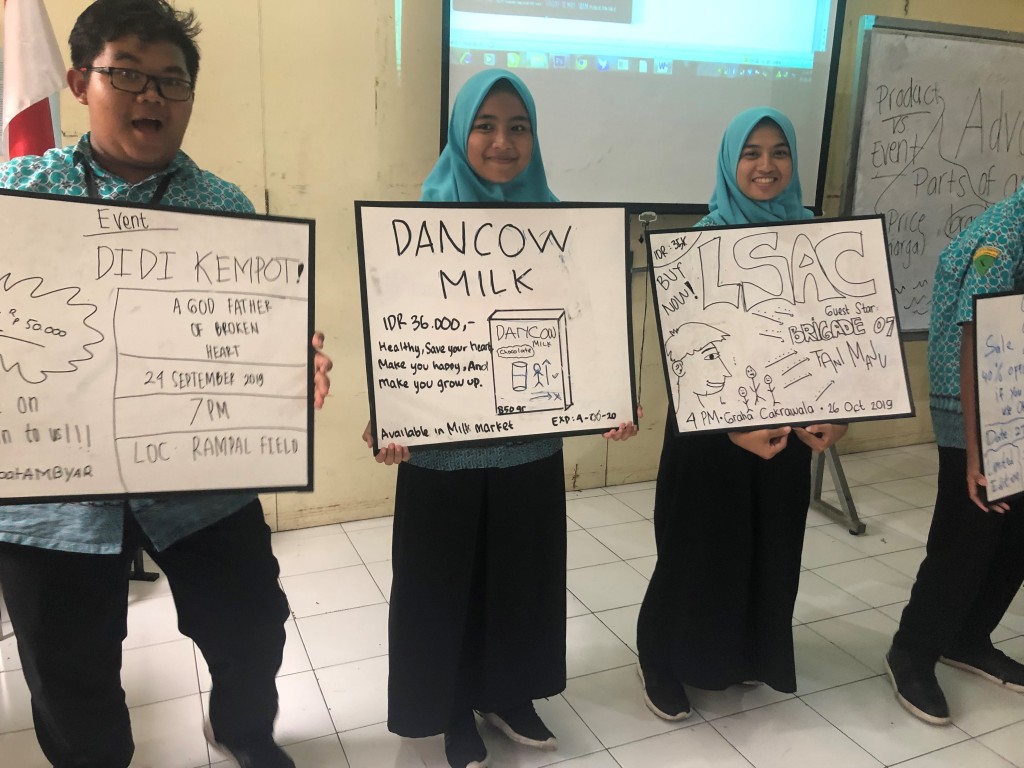 Event
DIDI KEMPOT!
A GOD FATHER
OF BROKEN
HEART
24 SEPTEMBER 2019
7 PM
LOC: RAMPAL FIELD
Rp 50.000
on
to us!!!
AMBYAR
DANCOW
MILK
IDR 36.000,-
Healthy, Save your heart
Make you happy, And
Make you grow up.
DANCOW
MILK
Chocolate
850 gr
Available in Milk market
EXP: 4-06-20
IDR: 35K
BUY
NOW!
LSAC
Guest Star:
BRIGADE 07
TANI MANU
4 PM · Graha Cakrawala · 26 Oct 2019
Product
VS
Event
Adv
Parts of a
Price
(harga)
Sale
40%
if You
Date